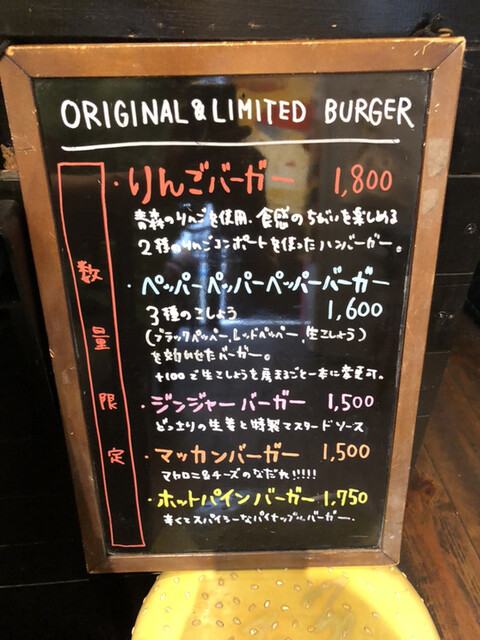 ORIGINAL & LIMITED BURGER
数量限定
・りんごバーガー 1,800
青森のりんごを使用、食感のちがいを楽しめる
2種のりんごコンポートを使ったハンバーガー。
・ペッパーペッパーペッパーバーガー
3種のこしょう 1,600
(ブラックペッパー、レッドペッパー、生こしょう)
を効かせたバーガー。
+100で生こしょうを房まるごと一本に変更可。
・ジンジャーバーガー 1,500
どっさりの生姜と特製マスタードソース
・マッカンバーガー 1,500
マカロニ&チーズのなだれ!!!!!
・ホットパインバーガー 1,750
辛くてスパイシーなパイナップルバーガー。